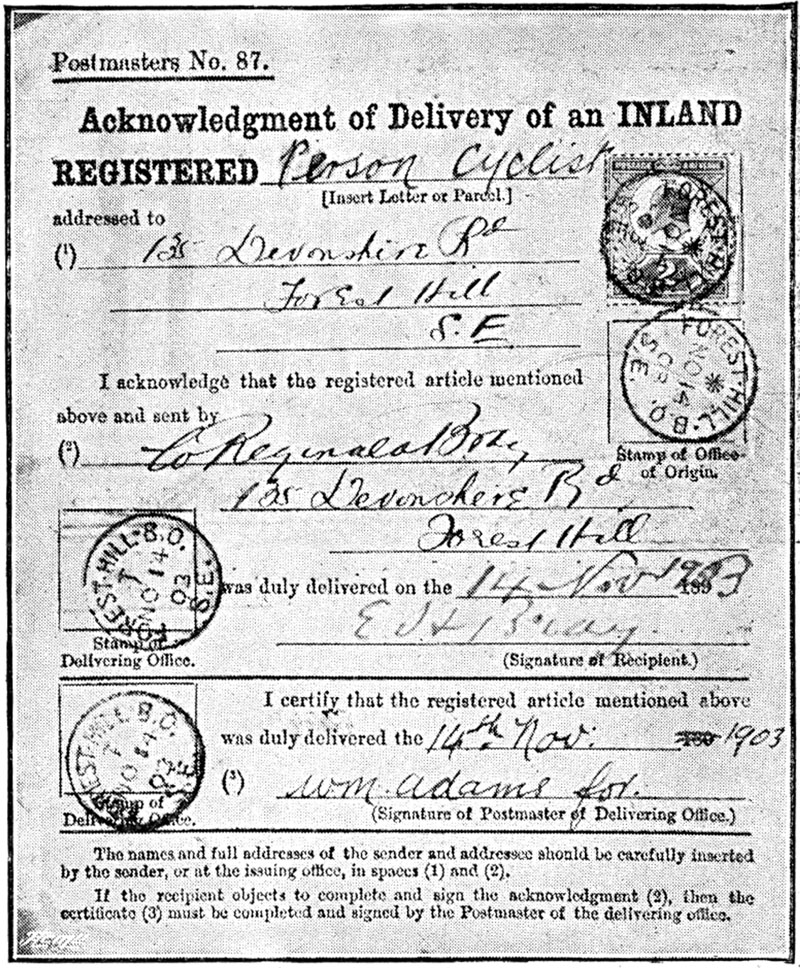 Postmasters No. 87.
Acknowledgment of Delivery of an INLAND
REGISTERED Person Cyclist
[Insert Letter or Parcel.]
addressed to
(1) 135 Devonshire Rd
Forest Hill
S.E
FOREST-HILL
FOREST-HILL·B.O. S.E.
NO 14
03
I acknowledge that the registered article mentioned
above and sent by
Stamp of Office
of Origin.
(2) W Reginald Bray
135 Devonshire Rd
Forest Hill
FOREST-HILL·B.O. S.E.
NO 14
03
was duly delivered on the 14 Nov 1903 189
Stamp of
Delivering Office.
E J H Bray
(Signature of Recipient.)
I certify that the registered article mentioned above
was duly delivered the 14th Nov. 189 1903
HILL B.O.
NO 14
03
(3) Wm Adams for.
Stamp of
Delivering Office.
(Signature of Postmaster of Delivering Office.)
The names and full addresses of the sender and addressee should be carefully inserted
by the sender, or at the issuing office, in spaces (1) and (2).
If the recipient objects to complete and sign the acknowledgment (2), then the
certificate (3) must be completed and signed by the Postmaster of the delivering office.